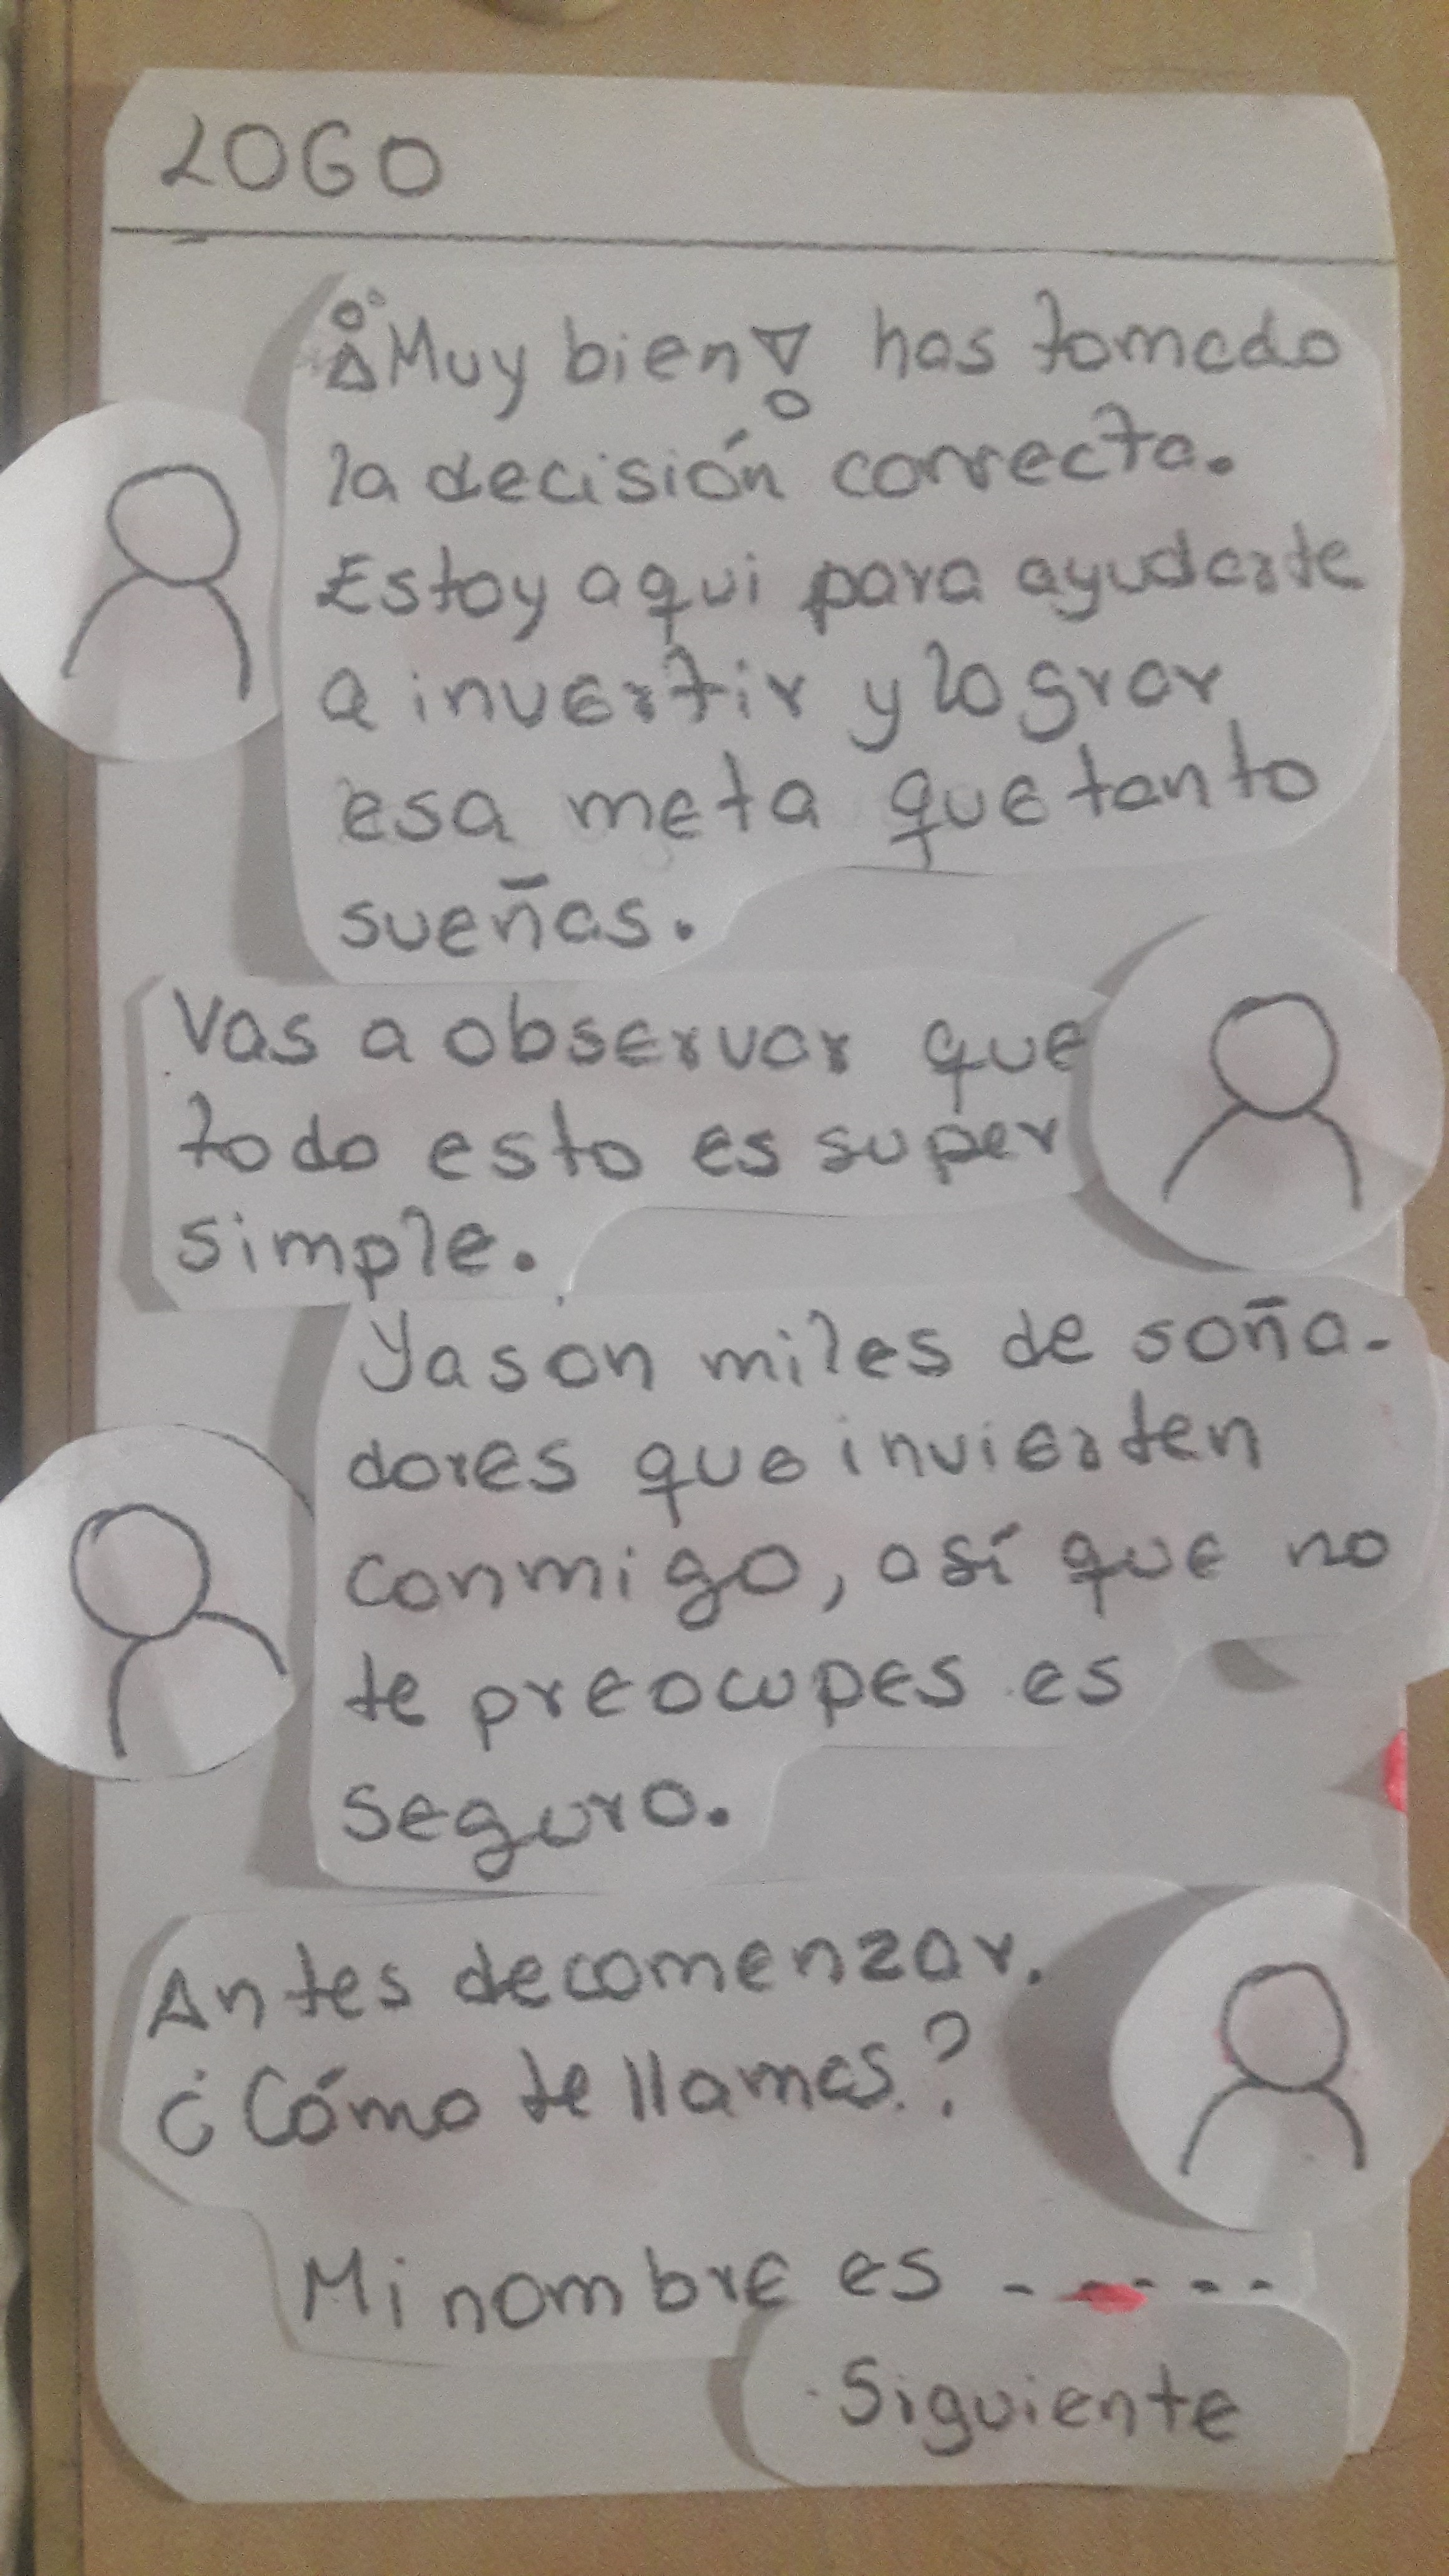 LOGO
¡Muy bien! has tomado
la decisión correcta.
Estoy aqui para ayudarte
a invertir y lograr
esa meta que tanto
sueñas.
Vas a observar que
todo esto es super
simple.
Ya son miles de soña-
dores que invierten
conmigo, así que no
te preocupes es
seguro.
Antes de comenzar.
¿Cómo te llamas?
Mi nombre es - - - - -
Siguiente